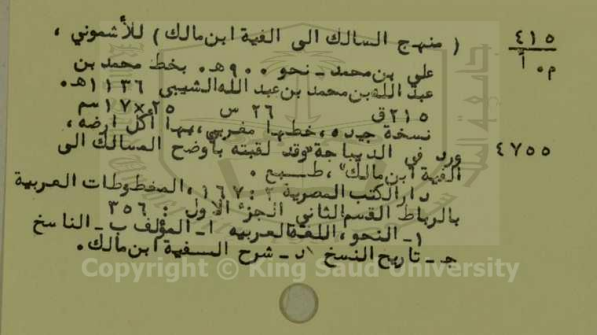 ٤١٥
م٠أ
( منهج السالك الى الفية ابن مالك ) للأشموني ،
علي بن محمد ـ نحو ٩٠٠هـ. بخط محمد بن
عبد الله بن محمد بن عبد الله الشيبي ١١٣٦هـ.
٢١٥ق ٢٦ س ٢٥×١٧سم
نسخة جيده، خطها مغربي، بها أكل ارضه،
٤٧٥٥
ورد في الديباجة "وقد لقبته بأوضح المسالك الى
الفية ابن مالك" ، طبع .
دار الكتب المصرية ٢ : ١٦٧ ، المخطوطات العربية
بالرباط القسم الثاني الجزء الاول : ٣٥٦
١ـ النحو، اللغة العربيه أـ المؤلف ب ـ الناسخ
جـ ـ تاريخ النسخ د ـ شرح السفية ابن مالك.
Copyright © King Saud University